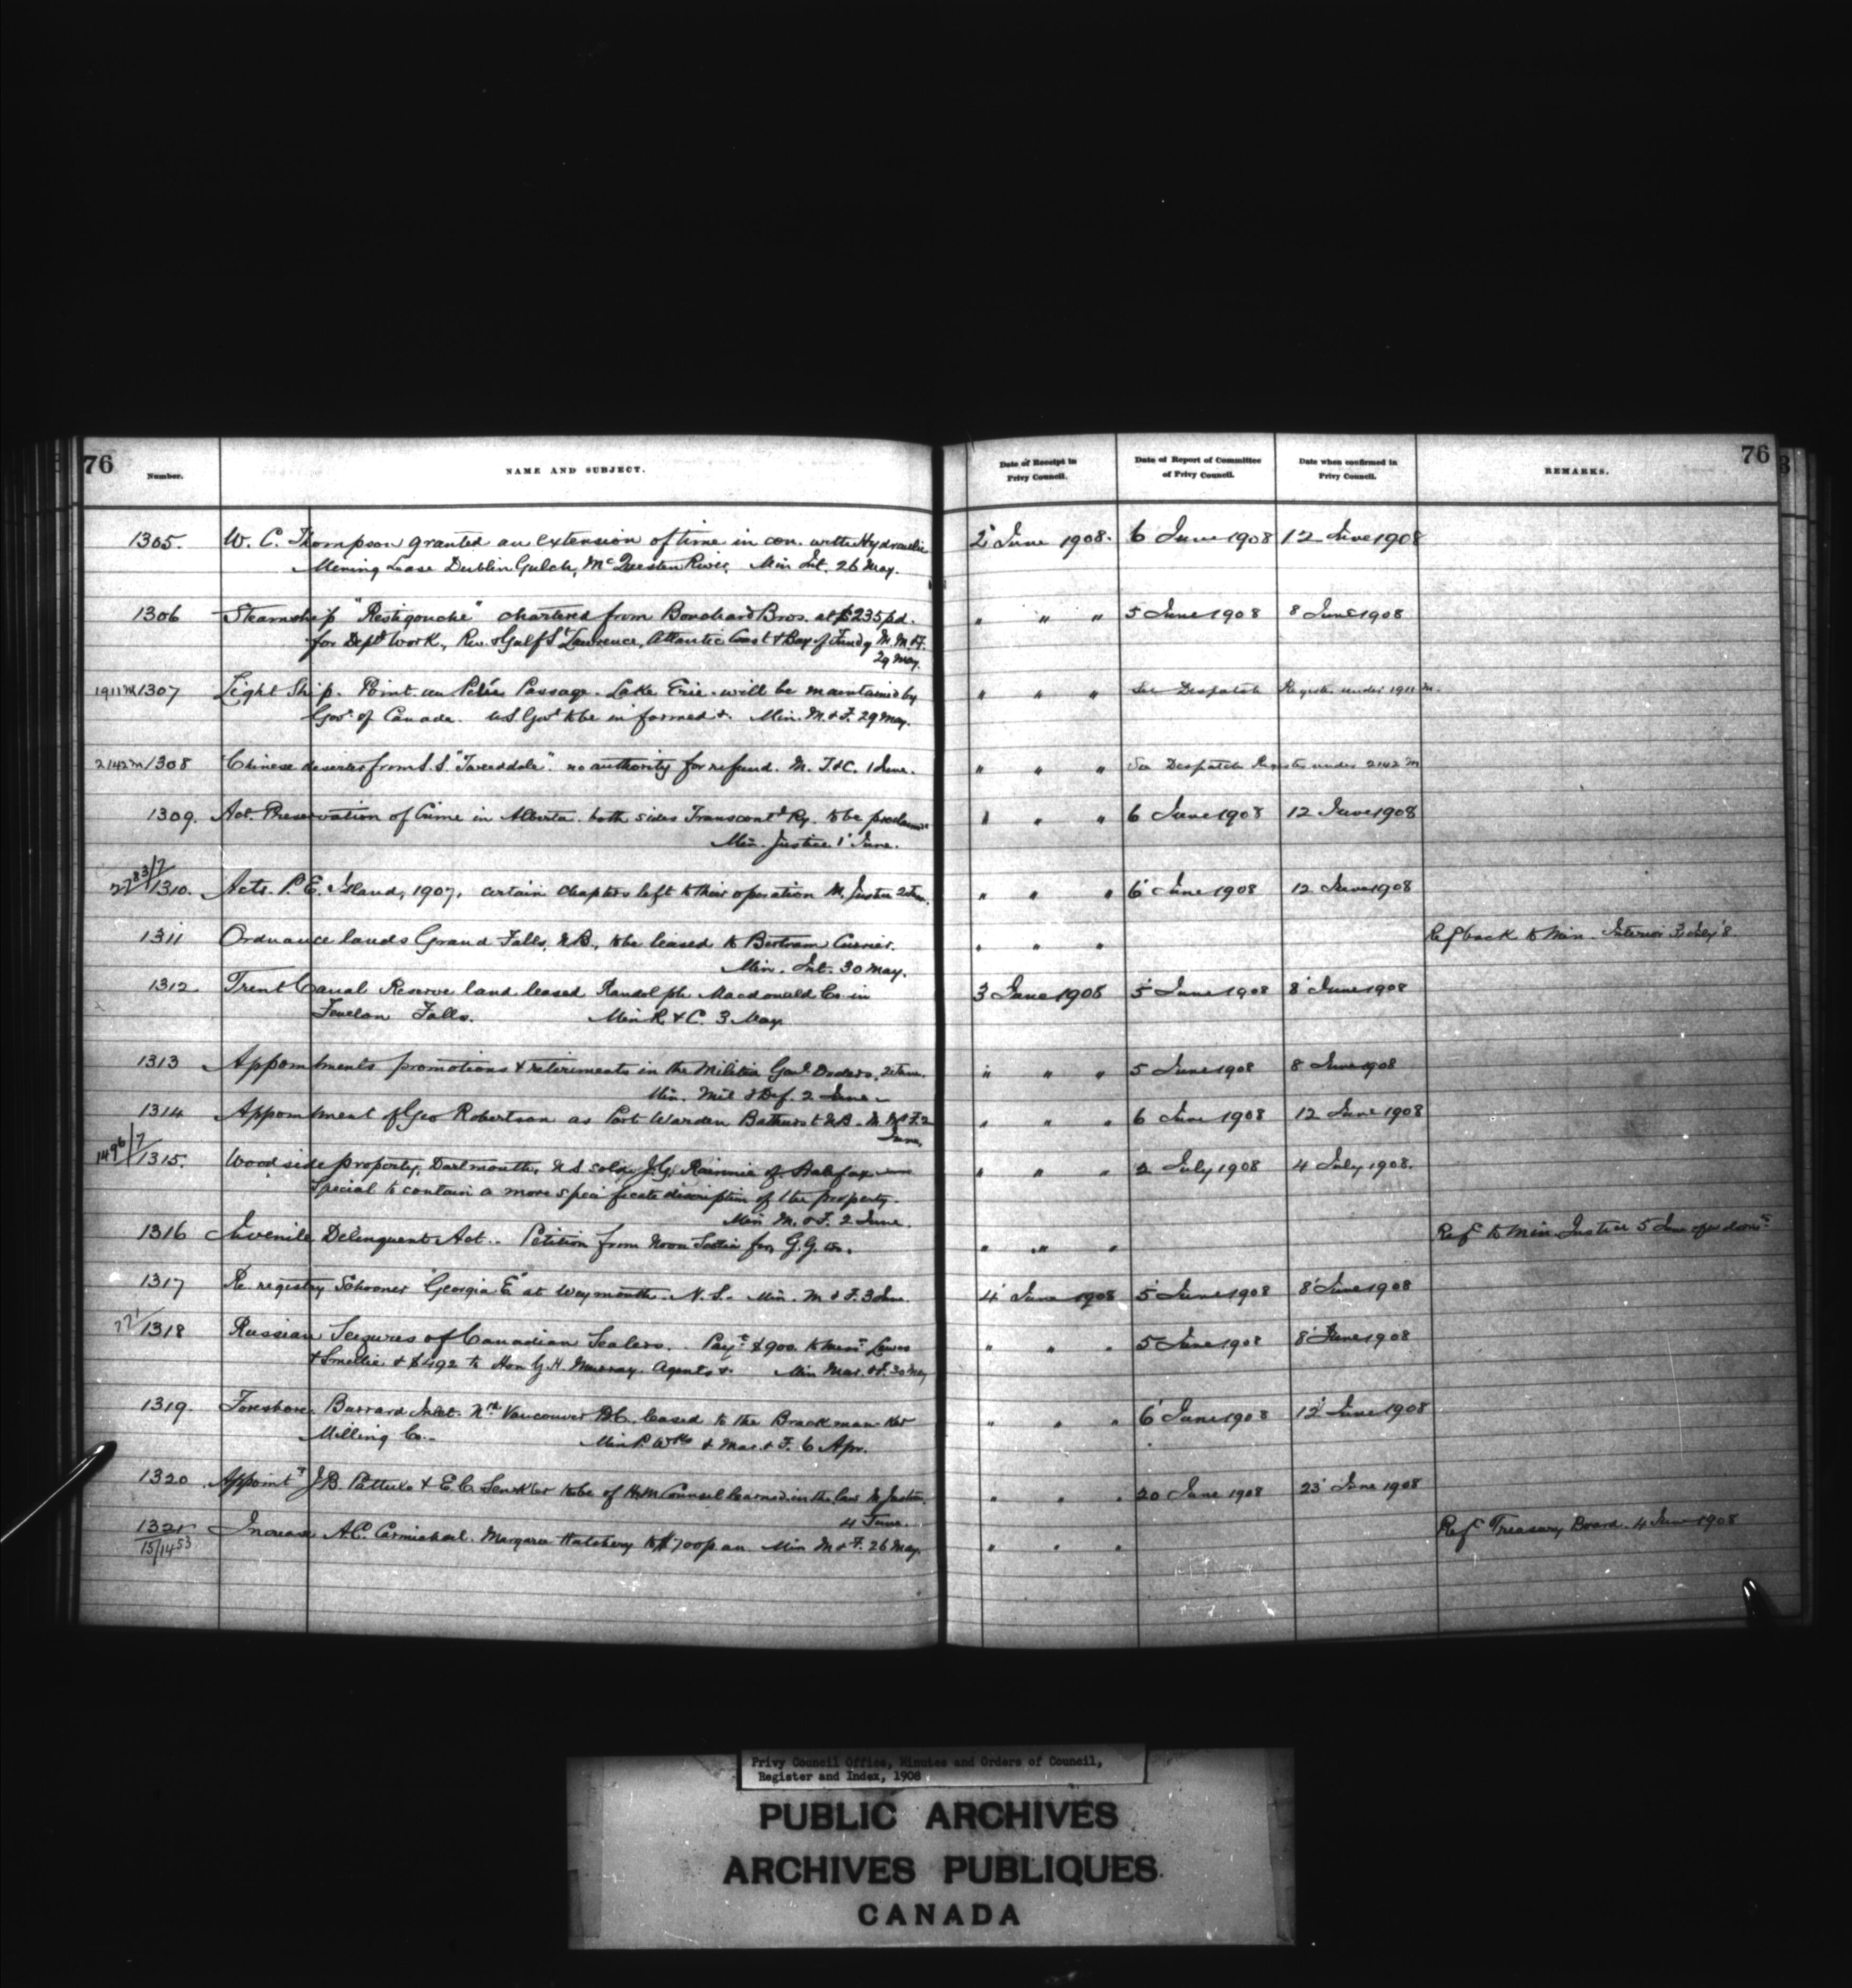 76
Number.
NAME AND SUBJECT.
Date of Receipt in Privy Council.
Date of Report of Committee of Privy Council.
Date when confirmed in Privy Council.
REMARKS.
76
1305. W. C. Thompson granted an extension of time in con. with Hydraulic 2 June 1908. 6 June 1908 12 June 1908
Mining Lease Dublin Gulch, McQuesten River. Min Int. 26 May.
1306 Steamship "Restigouche" chartered from Bros. at $235 pd. " " " 5 June 1908 8 June 1908
for Dept Work, Riv. & Gulf St Lawrence, Atlantic Coast & Bay of Fundy M. M & F.
29 May.
1911 M 1307 Light Ship. Point au Pelée Passage. Lake Erie. will be maintained by " " " See Despatch Register under 1911 M.
Govt of Canada. U.S. Govt to be informed &. Min. M. & F. 29 May.
2142 M 1308 Chinese deserter from S.S. "Tweeddale". no authority for refund. M. T. & C. 1 June. " " " See Despatch Register under 2142 M
1309. Act. Preservation of Crime in Alberta. both sides Transcontl Ry. to be " " " 6 June 1908 12 June 1908
Min. Justice 1 June.
1310. Acts. P. E. Island, 1907, certain chapters left to their operation M. Justice 2 June. " " " 6 June 1908 12 June 1908
1311 Ordnance lands Grand Falls, N.B., to be leased to Bertram Currier. " " " Ref back to Min. Interior 3 July '8.
Min. Int. 30 May.
1312 Trent Canal Reserve land leased Randolph Macdonald Co in 3 June 1908 5 June 1908 8 June 1908
Fenelon Falls. Min R. & C. 3 May
1313 Appointments promotions & retirements in the Militia Genl Orders, 2 June. " " " 5 June 1908 8 June 1908
Min. Mil & Def. 2 June.
1314 Appointment of Geo Robertson as Port Warden Bathurst N.B. M. M & F. 2 " " " 6 June 1908 12 June 1908
June.
1496/7 1315. Woodside property, Dartmouth, N.S. sold J. G. of Halifax " " " 2 July 1908 4 July 1908.
Special to contain a more description of the property.
Min M. & F. 2 June.
1316 Juvenile Delinquents Act.. Petition from Nova Scotia for G. G. " " " Ref to Min. Justice 5 June
1317 Re registry Schooner "Georgia E" at Weymouth. N. S. Min. M & F. 3 June. 4 June 1908 5 June 1908 8 June 1908
1318 Russian Seizures of Canadian Sealers. Payt $900. to Messrs Lewis " " " 5 June 1908 8 June 1908
& Smellie & $492 to Hon G. H. Murray. Agents &. Min Mar. & F. 30 May
1319. Foreshore Burrard Inlet. Nth Vancouver B.C. leased to the Brackman Ker " " " 6 June 1908 12 June 1908
Milling Co. Min P. Wks & Mar. & F. 6 Apr.
1320 Appointt J. B. Pattullo & E. C. Senkler to be of H. M Counsel learned in the law M Justice. " " " 20 June 1908 23 June 1908
4 June.
1321 Increase A. C. Carmichael. Margaree Hatchery to $700 p. an Min M & F. 26 May. " " " Ref Treasury Board. 4 June 1908
15/1453
Privy Council Office, Minutes and Orders of Council,
Register and Index, 1908
PUBLIC ARCHIVES
ARCHIVES PUBLIQUES
CANADA